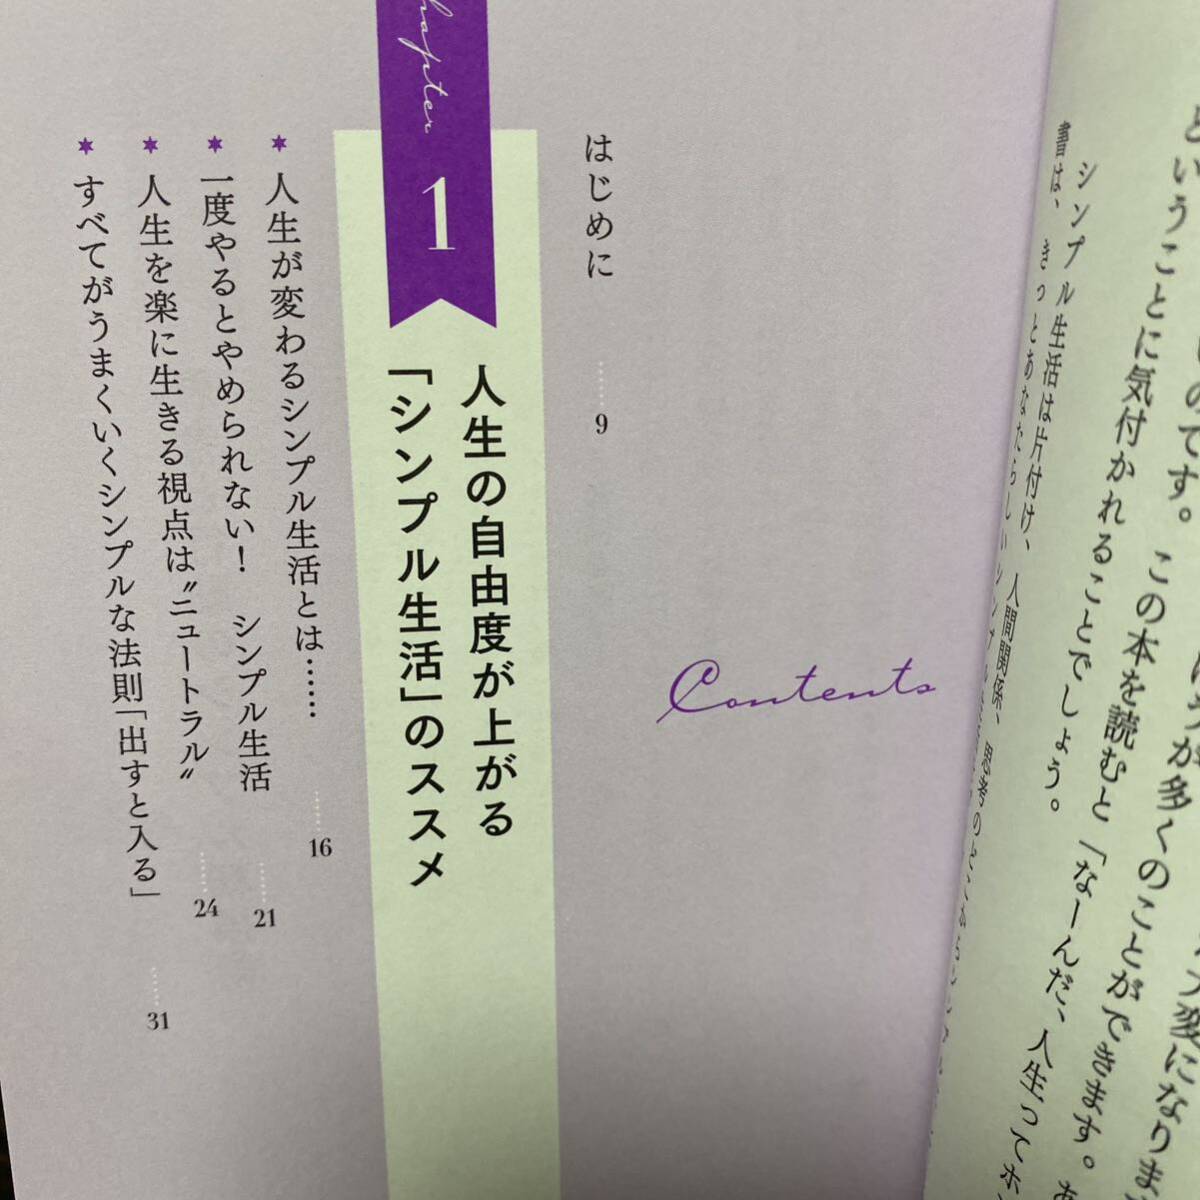 らいうことに気付かれることでしょう。
シンプル生活は片付け、人間関係、思考の
書は、きっとあなたらしい
のです。この本を読むと「なーんだ、人生って
が多くのことができます。
Contents
はじめに……9
Chapter 1
人生の自由度が上がる
「シンプル生活」のススメ
✶ 人生が変わるシンプル生活とは…………16
✶ 一度やるとやめられない！　シンプル生活……21
✶ 人生を楽に生きる視点は〝ニュートラル〟……24
✶ すべてがうまくいくシンプルな法則「出すと入る」……31